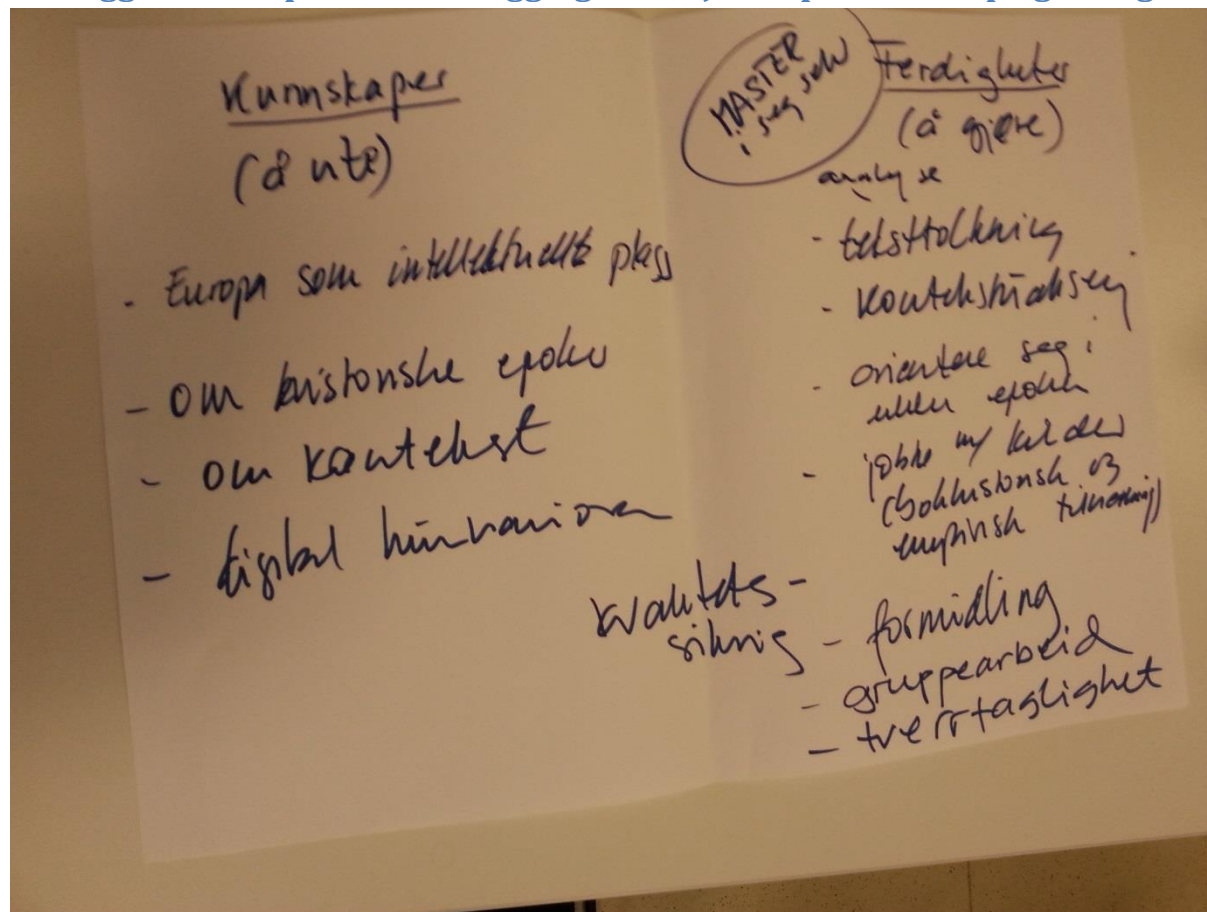 Kunnskaper
(å vite)
- Europa som intellektuelle plass
- om historiske epoker
- om kontekst
- digital humaniora
MASTER
i seg selv
Ferdigheter
(å gjøre)
analyse
- teksttolkning
- kontekstualisering
- orientere seg i
ulike epoker
- jobbe m/ kilder
(bokhistorisk og
empirisk tilnærming)
kvalitets-
sikring
- formidling
- gruppearbeid
- tverrfaglighet